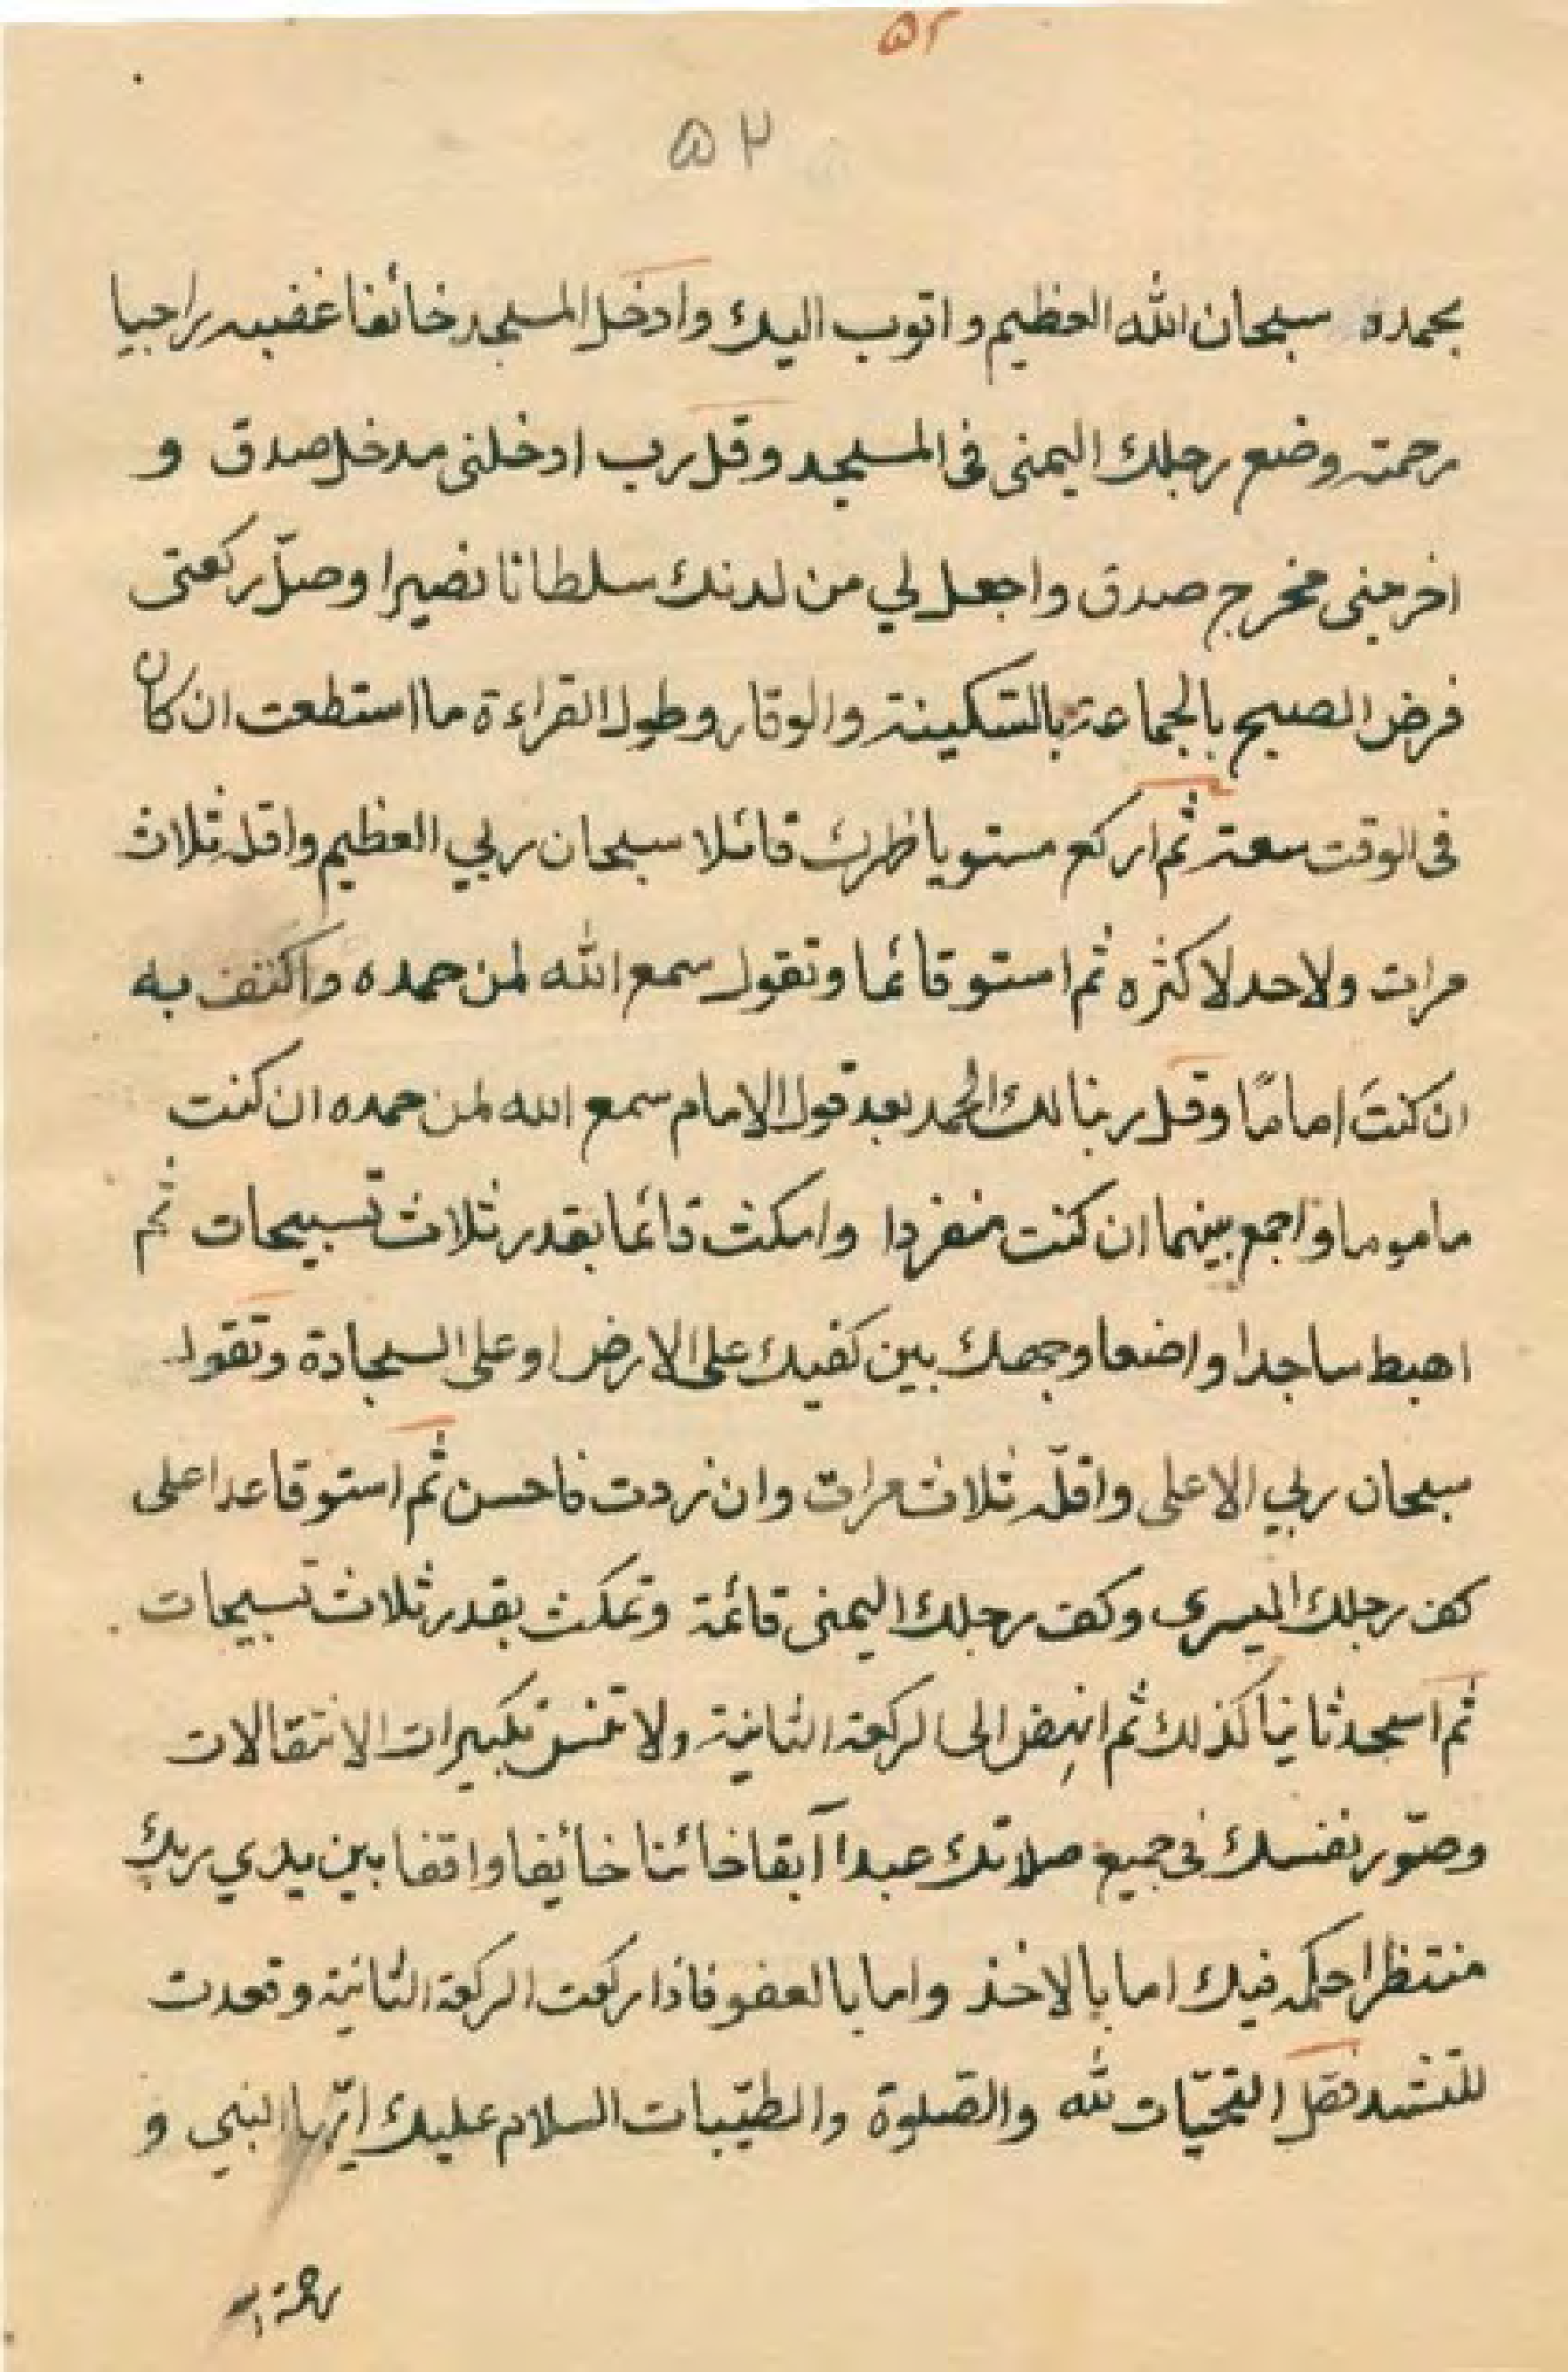 ٥٢
٥٢
بحمده سبحان الله العظيم واتوب اليك وادخل المسجد خائفا غضبه راجيا
رحمته وضع رجلك اليمنى فى المسجد وقل رب ادخلنى مدخل صدق و
اخرجنى مخرج صدق واجعل لي من لدنك سلطانا نصيرا وصلّ ركعتى
فرض الصبح بالجماعة بالسّكينة والوقار وطول القراءة ما استطعت ان كان
فى الوقت سعة ثم اركع مستويا ظهرك قائلا سبحان ربي العظيم واقله ثلاث
مرات ولاحد لاكثره ثم استو قائما وتقول سمع الله لمن حمده واكتف به
ان كنتَ امامًا وقل ربنا لك الحمد بعد قول الامام سمع الله لمن حمده ان كنت
ماموما واجمع بينهما ان كنت منفردا وامكث قائما بقدر ثلاث تسبيحات ثم
اهبط ساجدا واضعا وجهك بين كفيك على الارض او على السجادة وتقول
سبحان ربي الاعلى واقلّه ثلاث مرات وان زدت فاحسن ثم استو قاعدا على
كف رجلك اليسرى وكف رجلك اليمنى قائمة وتمكث بقدر ثلاث تسبيحات
ثم اسجد ثانيا كذلك ثم انهِض الى الركعة الثانية ولا تنس تكبيرات الانتقالات
وصوّر نفسك فى جميع صلاتك عبدا آبقا خائنا خائفا واقفا بين يدي ربك
منتظرا حكمه فيك اما بالاخذ واما بالعفو فاذا ركعت الركعة الثانية وقعدت
للتشهد فقل التحيّات لله والصّلوة والطيّبات السلام عليك ايّها النبي و
رحمة ا